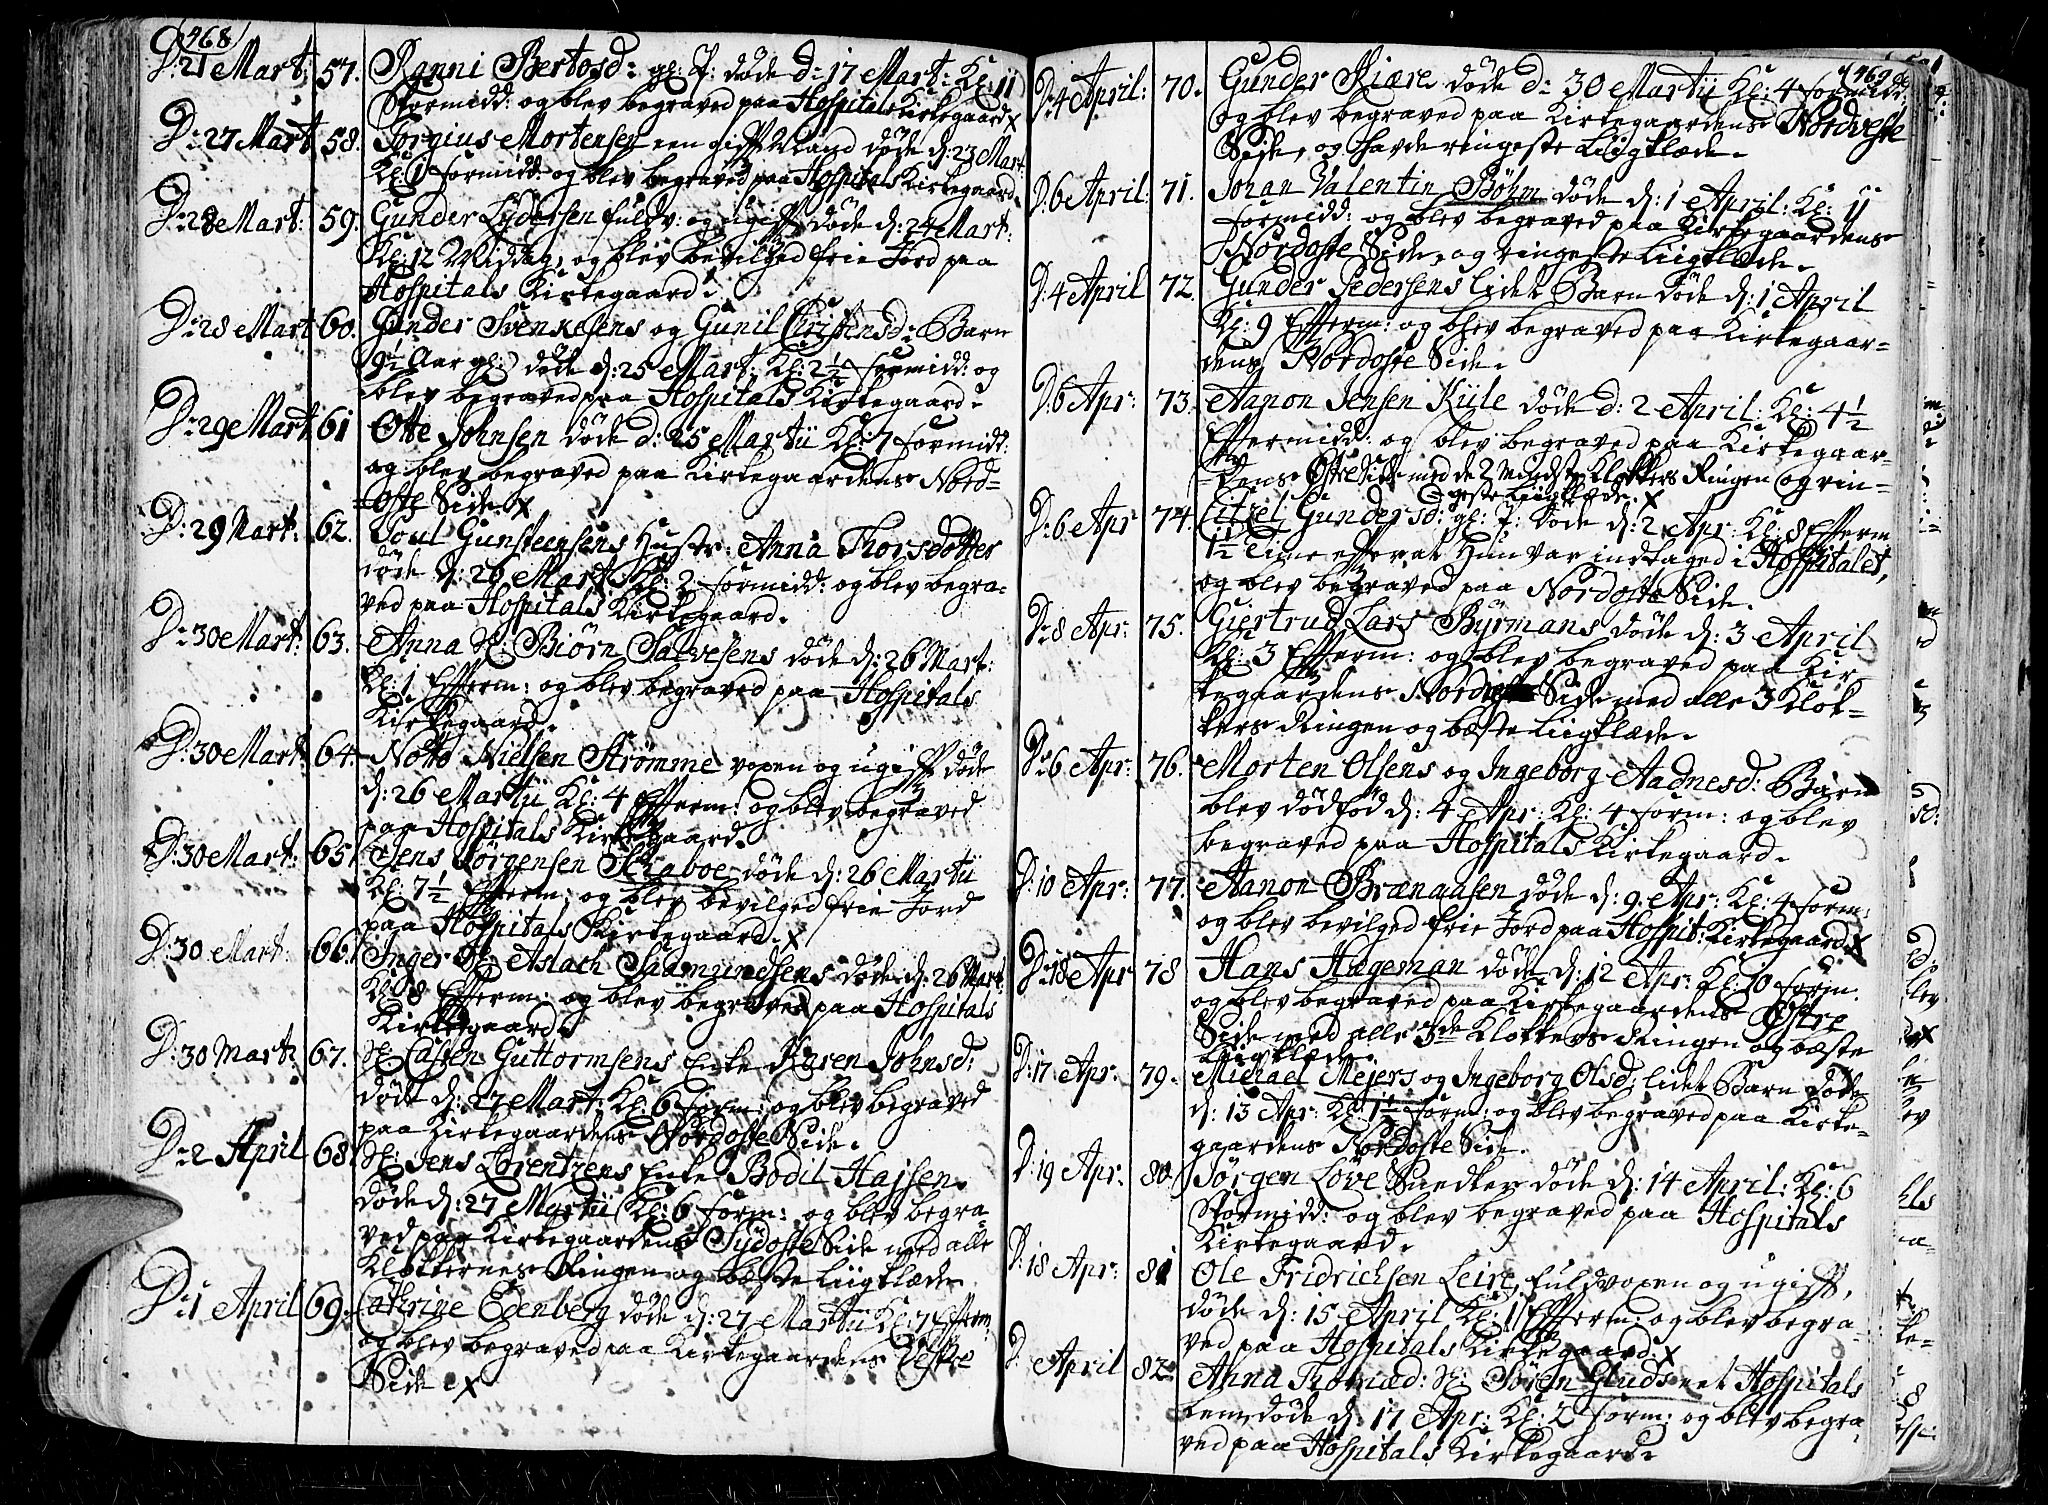 468
D: 21 Mart: 57. Ranni Bertosd: gl: P: døde d: 17 Mart: Kl: 11
Formidd: og blev begraved paa Hospitals Kirkegaard X
D: 27 Mart 58. Torgius Mortensen een gift Mand døde d: 23 Mart:
Kl: 1 formidd: og blev begraved paa Hospitals Kirkegaard.
D: 28 Mart: 59. Gunder Lydersen fuldv: og ugift døde d: 24 Mart:
Kl: 12 Middag, og blev bevilged frie Jord paa
Hospitals Kirkegaard.
D: 28 Mart 60. Gunder Svenkesens og Gunil Christensd: Barn
9½ Aar gl:) døde d: 25 Mart: Kl: 2½ formidd: og
blev begraved paa Hospitals Kirkegaard.
D: 29 Mart 61 Otte Johnsen døde d: 25 Martii Kl: 7 formidd:
og blev begraved paa Kirkegaardens Nord-
oste Side. X
D: 29 Mart: 62. Poul Gunsteensens Hustr: Anna Thorsdotter
døde d: 26 Mart: Kl: 2 formidd: og blev begra-
ved paa Hospitals Kirkegaard.
D: 30 Mart: 63. Anna Sl: Biørn Salvesens døde d: 26 Mart:
Kl: 1 Efterm: og blev begraved paa Hospitals
Kirkegaard.
D: 30 Mart: 64. Notto Nielsen Strømme voxen og ugift døde
d: 26 Martii Kl: 4 Efterm: og blev begraved
paa Hospitals Kirkegaard.
D: 30 Mart: 65. Jens Jørgensen døde d: 26 Martii
Kl: 7½ Efterm: og blev bevilged frie Jord
paa Hospitals Kirkegaard. X
D: 30 Mart: 66. Inger Sl: Aslach Saamundsens døde d: 26 Mart:
Kl: 8 Efterm: og blev begraved paa Hospitals
Kirkegaard.
D: 30 Mart: 67. Sl: Casten Guttormsens Enke Karen Johnsd:
døde d: 27 Mart: Kl: 6 form: og blev begraved
paa Kirkegaardens Nordoste Side.
D: 2 April 68. Sl: Jens Lorentzens Enke Bodil Hajsen
døde d: 27 Martii Kl: 6 form: og blev begra-
ved paa Kirkegaardens Sydoste Side med alle
Klokkernes Ringen og bæste Liigklæde.
D: 1 April 69. Cathrine Edenberg døde d: 27 Martii Kl: 7 Efterm:
og blev begraved paa Kirkegaardens Vestre
Side. X
469
D: 4 April: 70. Gunder Kiære døde d: 30 Martii Kl: 4 formidd:
og blev begraved paa Kirkegaardens Nordveste
Side, og havde ringeste Liigklæde.
D: 6 April: 71. Johan Valentin Böhm døde d: 1 April: Kl: 11
formidd: og blev begraved paa Kirkegaardens
Nordoste Side, og ringeste Liigklæde.
D: 4 April 72. Gunder Pedersens lidet Barn døde d: 1 April
Kl: 9 Efterm: og blev begraved paa Kirkegaar-
dens Nordoste Side.
D: 6 Apr: 73. Aanon Jensen Kiile døde d: 2 April: Kl: 4½
Eftermidd: og blev begraved paa Kirkegaar-
dens Østre Side med de 2 Mindste Klokkers Ringen og rin-
geste Liigklæde. X
D: 6 Apr 74. Citzel Gundersd: gl: P: døde d: 2 Apr: Kl: 8 Efterm
1½ Time efter at Hun var indtaged i Hospitalet,
og blev begraved paa Nordoste Side.
D: 8 Apr: 75. Giertrud Lars Byrmans døde d: 3 April
Kl: 3 Efterm: og blev begraved paa Kir-
kegaardens Side med alle 3 Klok-
kers Ringen og bæste Liigklæde.
D: 6 Apr: 76. Morten Olsens og Ingeborg Aadnesd: Barn
blev dødfød d: 4 Apr: Kl: 4 form: og blev
begraved paa Hospitals Kirkegaard.
D: 10 Apr: 77. Aanon døde d: 9 Apr: Kl: 4 form:
og blev bevilged frie Jord paa Hospit: Kirkegaard X
D: 18 Apr 78 Hans Hageman døde d: 12 Apr: Kl: 10 form.
og blev begraved paa Kirkegaardens Østre
Side med alle 3de Klokkers Ringen og bæste
Liigklæde.
D: 17 Apr: 79. Michael Mejers og Ingeborg Olsd: lidet Barn døde
d: 13 Apr: Kl: 1½ form: og blev begraved paa Kirke-
gaardens Nordoste Side.
D: 19 Apr: 80. Jørgen Løve Snedker døde d: 14 April: Kl: 6
Formidd: og blev begraved paa Hospitals
Kirkegaard.
D: 18 Apr: 81 Ole Fridrichsen Leire, fuldvoxen og ugift,
døde d: 15 April Kl: 11 Efterm: og blev begra-
ved paa Hospitals Kirkegaard. X
D: April 82. Anna Sl: Søren Gluds eet Hospitals
Lem, døde d: 17 Apr: Kl: 2 form: og blev begra-
ved paa Hospitals Kirkegaard.